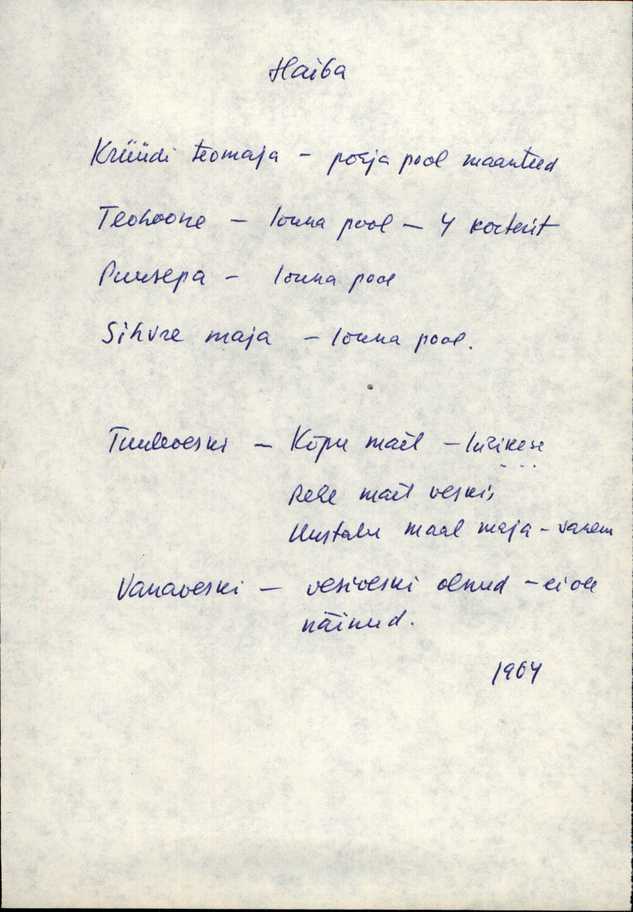 Haiba
Krüüdi teomaja – põhja pool maanteed
Teohoone – lõuna pool – 4 korterit
Puusepa – lõuna pool
Sihvre maja – lõuna pool.
Tuuleveski – Kõpu mäel –
Rehe mäel veski,
Uustalu maal maja – vanem
Vanaveski – vesiveski olnud – ei ole
näinud.
1964